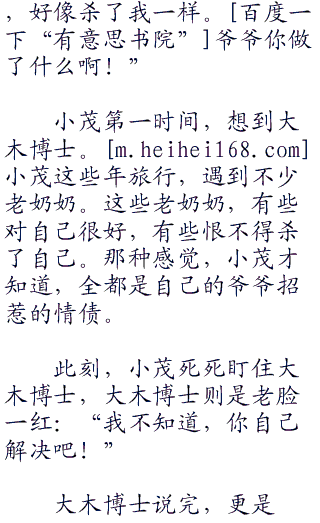 ，好像杀了我一样。[百度一
下“有意思书院”]爷爷你做
了什么啊！”
小茂第一时间，想到大
木博士。[m.heihei168.com]
小茂这些年旅行，遇到不少
老奶奶。这些老奶奶，有些
对自己很好，有些恨不得杀
了自己。那种感觉，小茂才
知道，全都是自己的爷爷招
惹的情债。
此刻，小茂死死盯住大
木博士，大木博士则是老脸
一红：“我不知道，你自己
解决吧！”
大木博士说完，更是